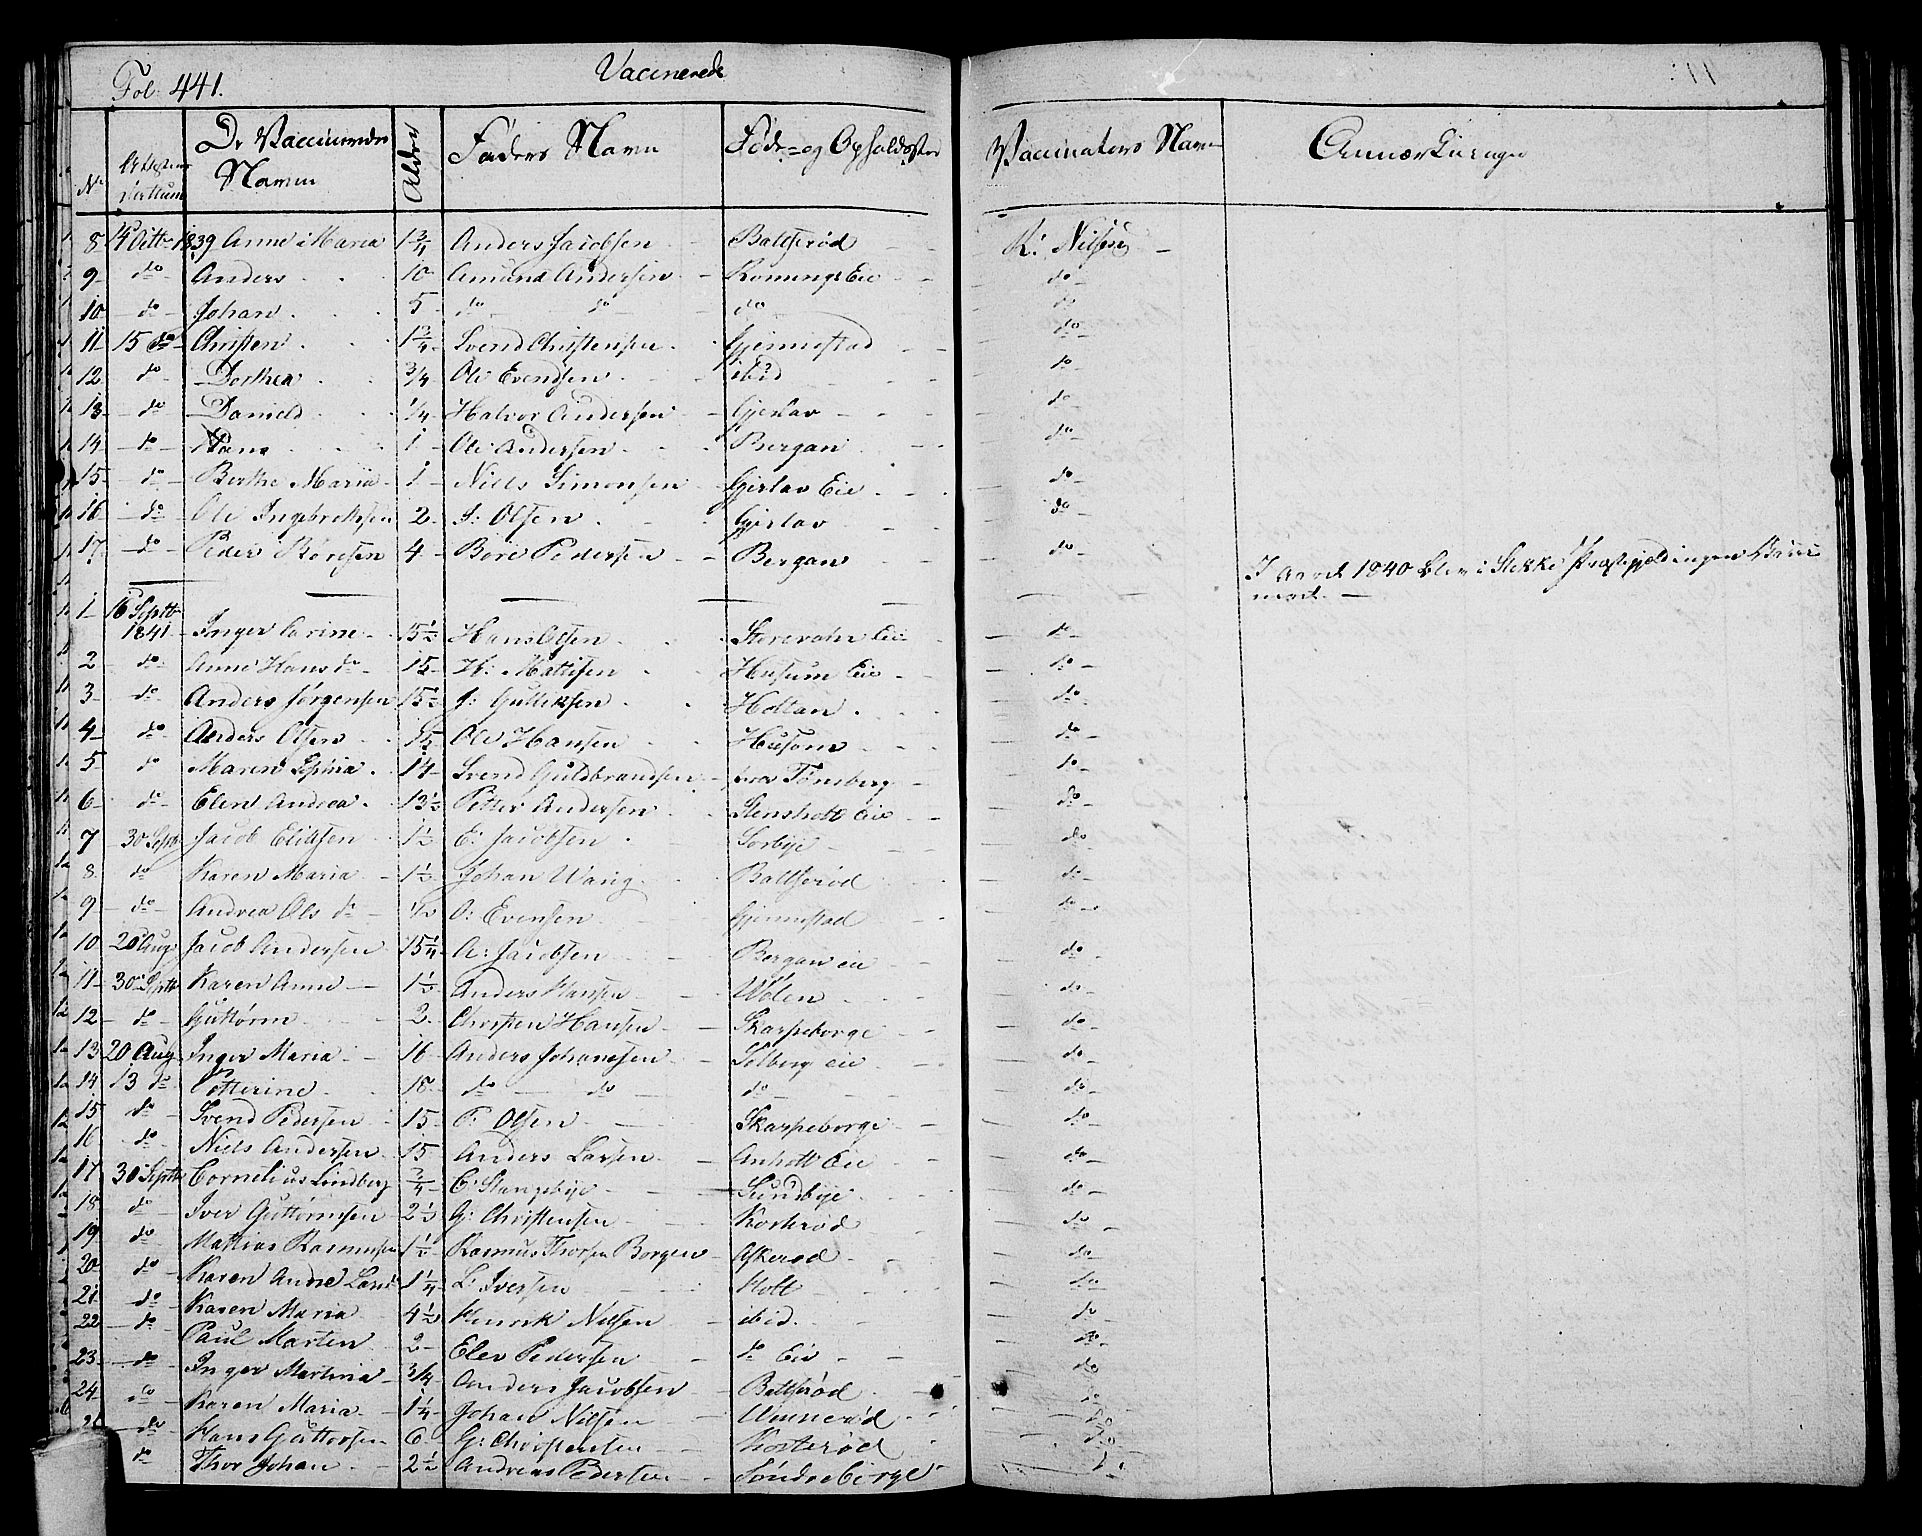 Fol: 441. Vaccinerede
No Attestens Datum De Vaccineredes Navne Alder Faders Navn Føde- og Opholdssted Vaccinateurs Navn Anmærkninger
8 14 Octbr 1839 Anne Maria Anders Jacobsen Baltserød K: Nilsen
9 do Anders 10 Amund Andersen Eie do
10 do Johan 5 do do do do
11 15 do Christen 1 3/4 Svend Christensen Gjennestad do
12 do Dorthea 3/4 Ole Evendsen ibid do
13 do Daniel 1/4 Halvor Andersen Gjerlav do
14 do 1 Ole Andersen Bergan do
15 do Berthe Maria 1 Niels Simonsen Gjerlav Eie do
16 do Ole Ingebrektsen 2 I: Olsen Gjerlav do
17 do Peder Børesen 4 Børe Pedersen Bergan do
I Aaret 1840 blev i Stokke Præstegjeld ingen Vacci
neret.
1 16 Septbr 1841 Inger Carine 15 1/2 Hans Olsen Eie do
2 do Anne Hansdr 15 H: Mathisen Husum Eie do
3 do Anders Jørgensen 15 1/2 J: Gulliksen Holtan do
4 do Anders Olsen 15 Ole Hansen Husom do
5 do Maren 14 Svend Guldbrandsen fra Tønsberg do
6 do Elen Andrea 13 1/2 Petter Andersen Stensholt Eie do
7 30 Septbr Jacob Eliasen 1 1/2 E: Jacobsen Sørbye do
8 do Karen Maria 1 1/2 Johan Wang Baltserød do
9 do Andrea Olsdr 1/2 O: Evensen Gjennestad do
10 20 Aug Jacob Andersen 15 1/4 A: Jacobsen Bergan eie do
11 30 Septbr Karen Anne 1 1/2 Anders Hansen Wølen do
12 do Guttorm 2 Christen Hansen Skarpeborge do
13 20 Aug Inger Maria 16 Anders Johannesen Solberg eie do
14 13 do Catterine 18 do do do do
15 do Svend Pedersen 15 P. Olsen Skarpeborge do
16 do Niels Andersen 15 Anders Larsen Anholt Eie do
17 30 Septbr Cornelius Lindberg 3/4 E: Stangebye Sundbye do
18 do Iver Guttormsen 2 1/2 G: Christensen Kosterød do
19 do Mathias Rasmussen 1 1/2 Rasmus Thorsen Borgen Askerød do
20 do Karen Anne Larsdr 1 1/4 L: Iversen Holt do
21 do Karen Maria 4 1/2 Henrik Nilsen ibid. do
22 do Paul Martin 2 Elev Pedersen do Eie do
23 do Inger Martina 3/4 Anders Jacobsen Baltserød do
24 do Karen Maria 1 1/4 Johan Nilsen Winnerød do
25 do Hans Guttorsen 6 G: Christensen Kosterød do
do Thor Johan 2 1/2 Andreas Pedersen Søndreborge do